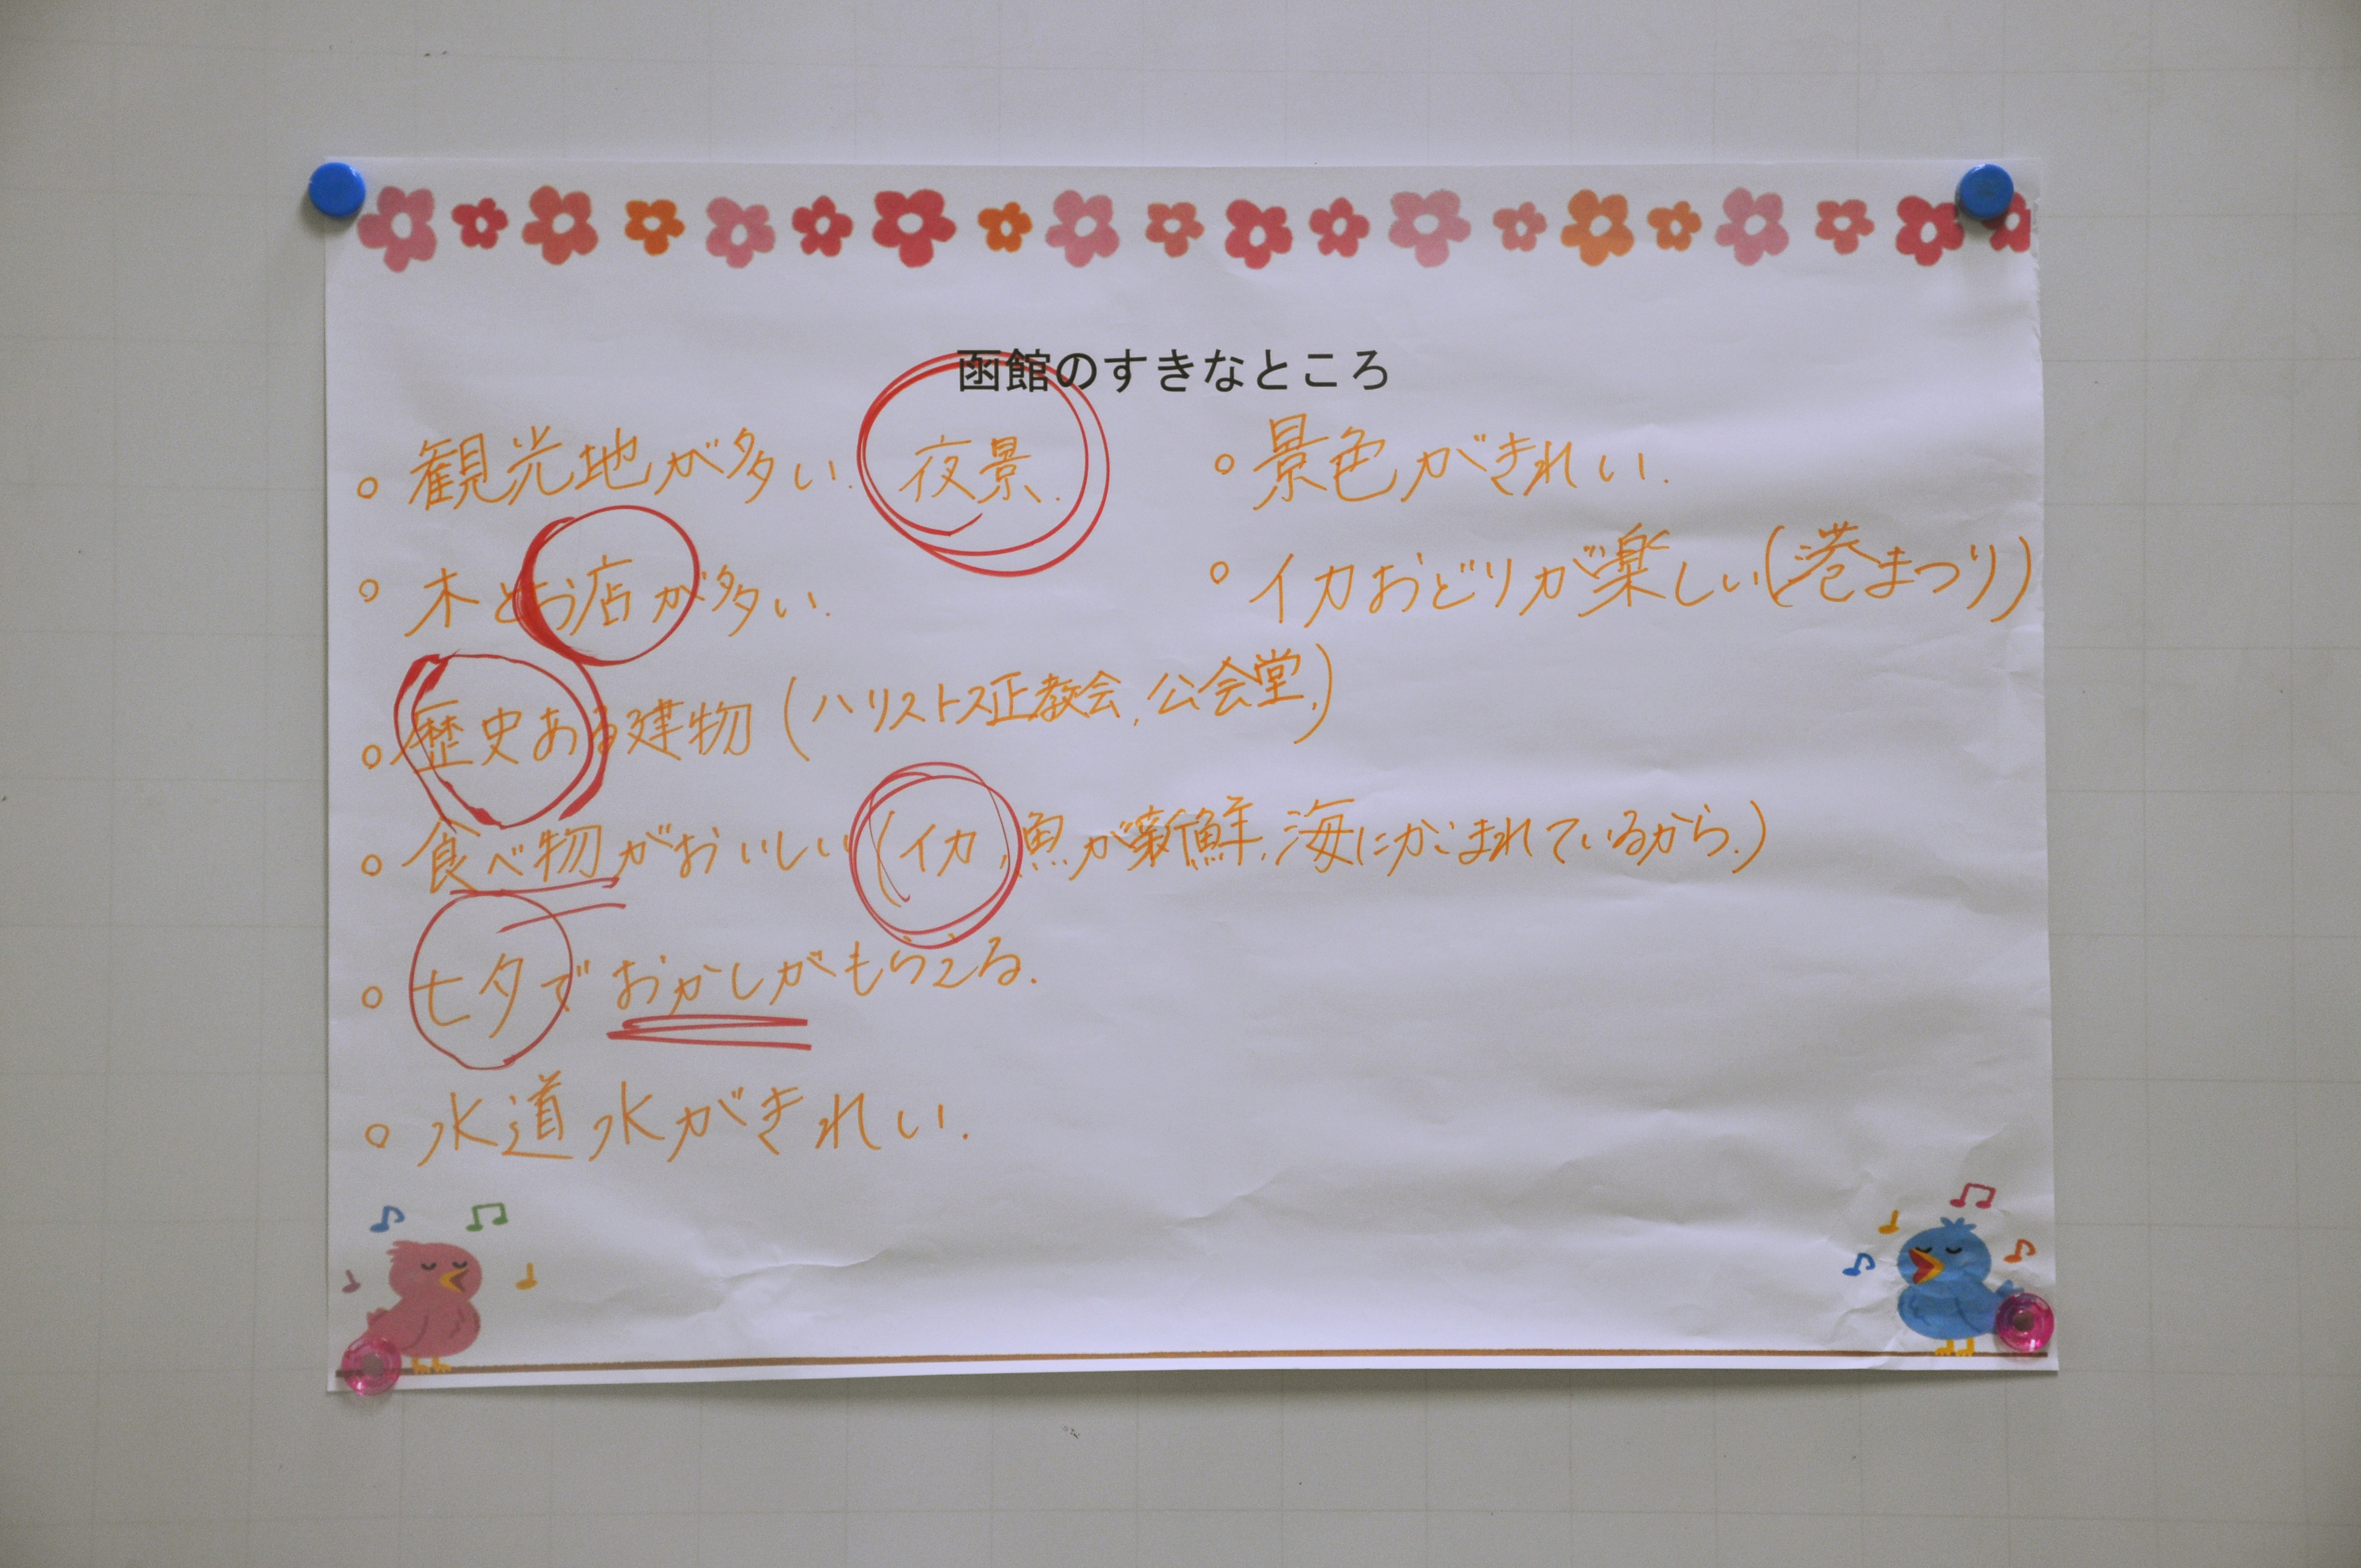 函館のすきなところ
○ 観光地が多い. 夜景.
○ 木とお店が多い.
○ 歴史ある建物 (ハリストス正教会, 公会堂,)
○ 食べ物がおいしい (イカ, 魚が新鮮, 海にかこまれているから.)
○ 七夕でおかしがもらえる.
○ 水道水がきれい.
○ 景色がきれい.
○ イカおどりが楽しい (港まつり)